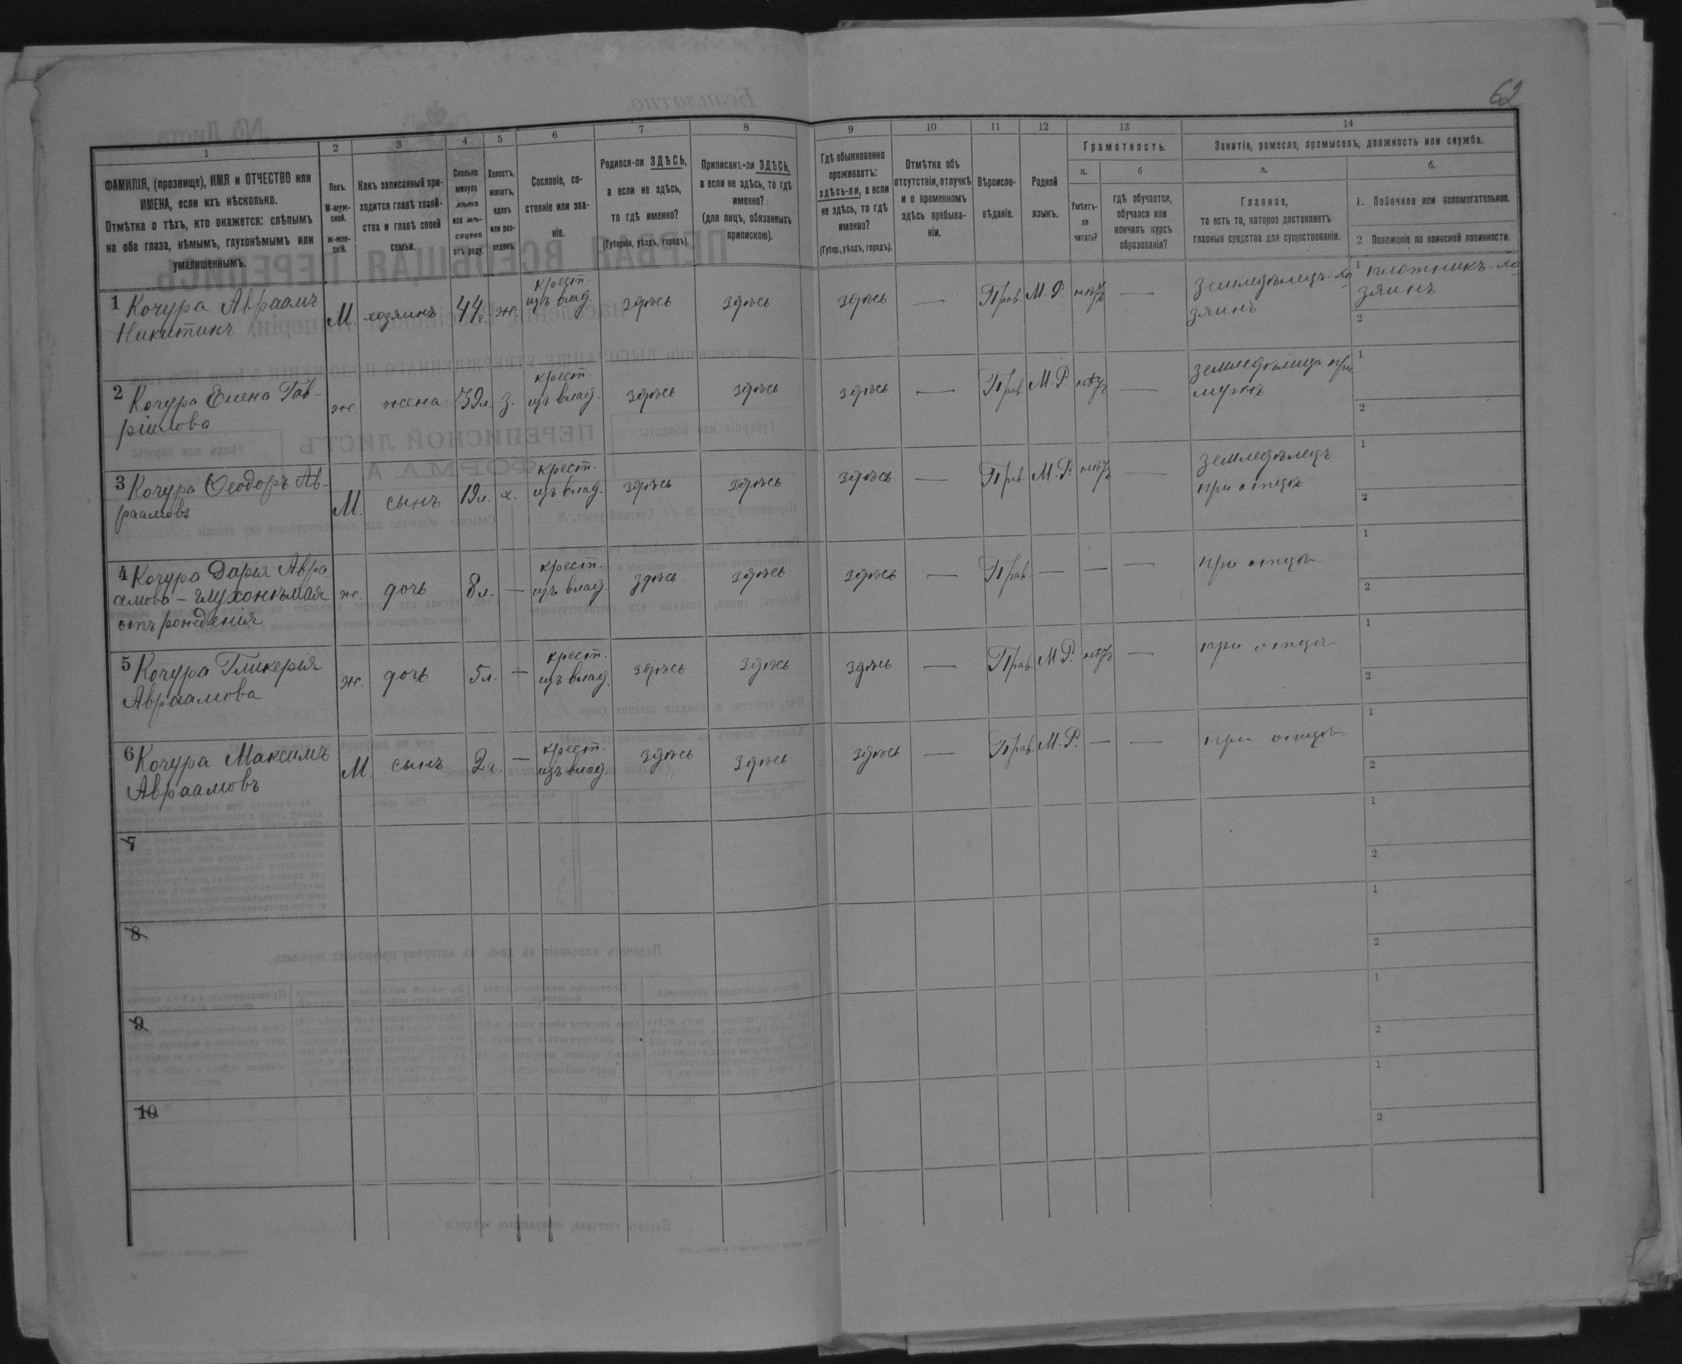 62
1 2 3 4 5 6 7 8 9 10 11 12 13 14
ФАМИЛІЯ, (прозвище), ИМЯ и ОТЧЕСТВО или
ИМЕНА, если ихъ нѣсколько.
Отмѣтка о тѣхъ, кто окажется: слѣпымъ
на оба глаза, нѣмымъ, глухонѣмымъ или
умалишеннымъ.
Полъ.
М-муж-
ской.
ж-жен-
скій.
Какъ записанный при-
ходится главѣ хозяй-
ства и главѣ своей
семьи.
Сколько
минуло
лѣтъ
или мѣ-
сяцевъ
отъ роду.
Холостъ,
женатъ,
вдовъ
или раз-
веденъ.
Сословіе, со-
стояніе или зва-
ніе.
Родился-ли ЗДѢСЬ,
а если не здѣсь,
то гдѣ именно?
(Губернія, уѣздъ, городъ).
Приписанъ-ли ЗДѢСЬ,
а если не здѣсь, то гдѣ
именно?
(для лицъ, обязанныхъ
припискою).
Гдѣ обыкновенно
проживаетъ:
здѣсь-ли, а если
не здѣсь, то гдѣ
именно?
(Губер., уѣздъ, городъ).
Отмѣтка объ
отсутствіи, отлучкѣ
и о временномъ
здѣсь пребыва-
ніи.
Вѣроиспо-
вѣданіе.
Родной
языкъ.
Грамотность.
а.
Умѣетъ-
ли
читать?
б
гдѣ обучается,
обучался или
кончилъ курсъ
образованія?
Занятіе, ремесло, промыселъ, должность или служба.
а.
Главное,
то есть то, которое доставляетъ
главныя средства для существованія.
б.
1. Побочное или вспомогательное.
2 Положеніе по воинской повинности.
1 Кочура Авраамъ
Никитинъ
М. хозяинъ 44г. ж.
крест.
изъ влад.
здѣсь здѣсь здѣсь — Прав. М.Р. нѣтъ —
земледѣлецъ-хо
зяинъ
1 плотникъ-хо
зяинъ
2
2 Кочура Елена Гав-
рилова
ж. жена 39л. з.
крест.
изъ влад.
здѣсь здѣсь здѣсь — Прав. М.Р. нѣтъ —
земледѣлица при
мужѣ
1
2
3 Кочура Ѳеодоръ Ав-
раамовъ
М. сынъ 19л. х.
крест.
изъ влад.
здѣсь здѣсь здѣсь — Прав. М.Р. нѣтъ —
земледѣлецъ
при отцѣ
1
2
4 Кочура Дарья Авра
амова – глухонѣмая
отъ рожденія
ж. дочь 8л. —
крест.
изъ влад.
здѣсь здѣсь здѣсь — Прав. — — —
при отцѣ
1
2
5 Кочура Гликерія
Авраамова
ж. дочь 5л. —
крест.
изъ влад.
здѣсь здѣсь здѣсь — Прав. М.Р. нѣтъ —
при отцѣ
1
2
6 Кочура Максимъ
Авраамовъ
М сынъ 2г. —
крест.
изъ влад.
здѣсь здѣсь здѣсь — Прав. М.Р. — —
при отцѣ
1
2
7
1
2
8
1
2
9
1
2
10
1
2